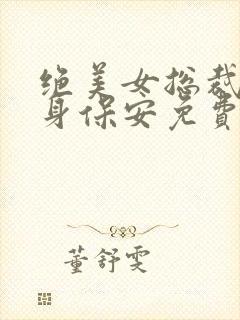 绝美女总裁
身保安免費
董舒雯